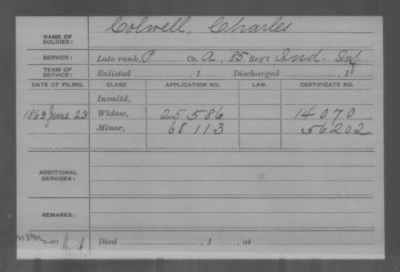 Colwell, Charles
NAME OF SOLDIER:
SERVICE: Late rank, P Co. A, 85 Reg't Ind. Inf
TERM OF SERVICE: Enlisted , 1 Discharged , 1
DATE OF FILING. CLASS. APPLICATION NO. LAW. CERTIFICATE NO.
Invalid,
1863 June 23 Widow, 25586 14070
Minor, 68113 56202
ADDITIONAL SERVICES:
REMARKS:
Died , 1 , at